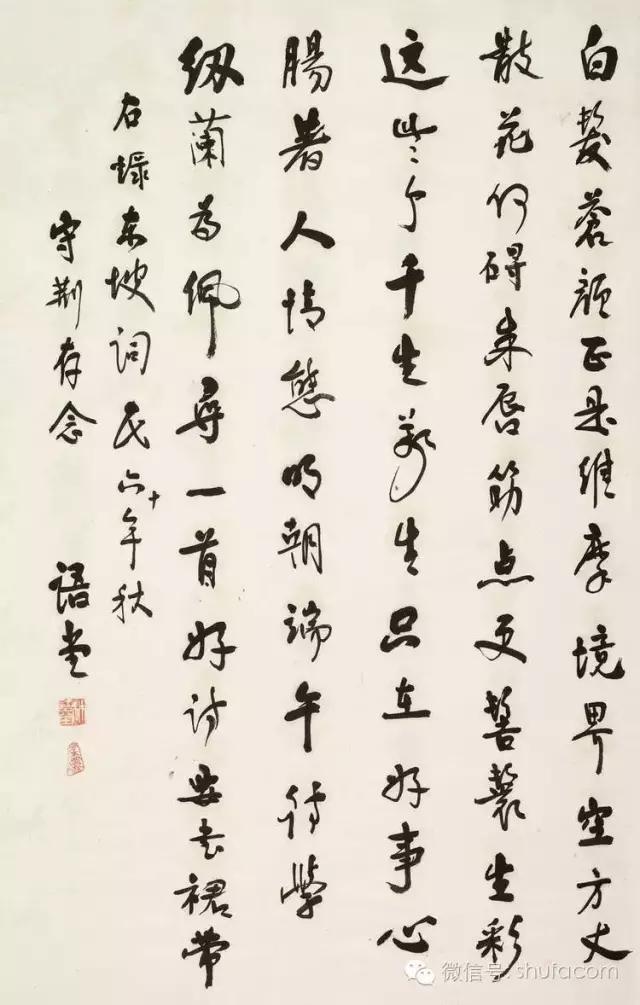 白髮蒼顏正是維摩境界空方丈
散花何碍朱唇筯点更髻鬟生彩
这些个千生萬生只在好事心
腸著人情態明朝端午待學
紉蘭为佩尋一首好詩要書裙帶
右録东坡詞民六十年秋
守荆存念 語堂
微信号: shufacom